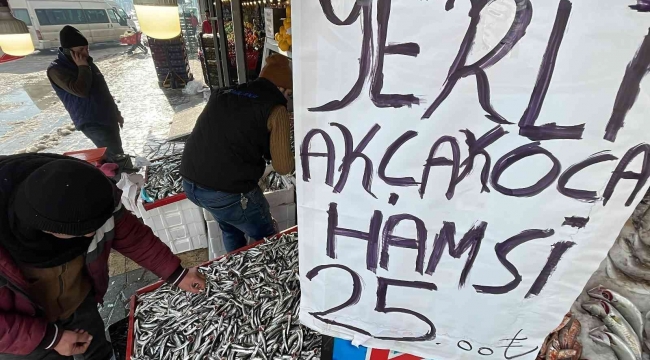 YERLİ
AKÇAKOCA
HAMSİ
25.00₺